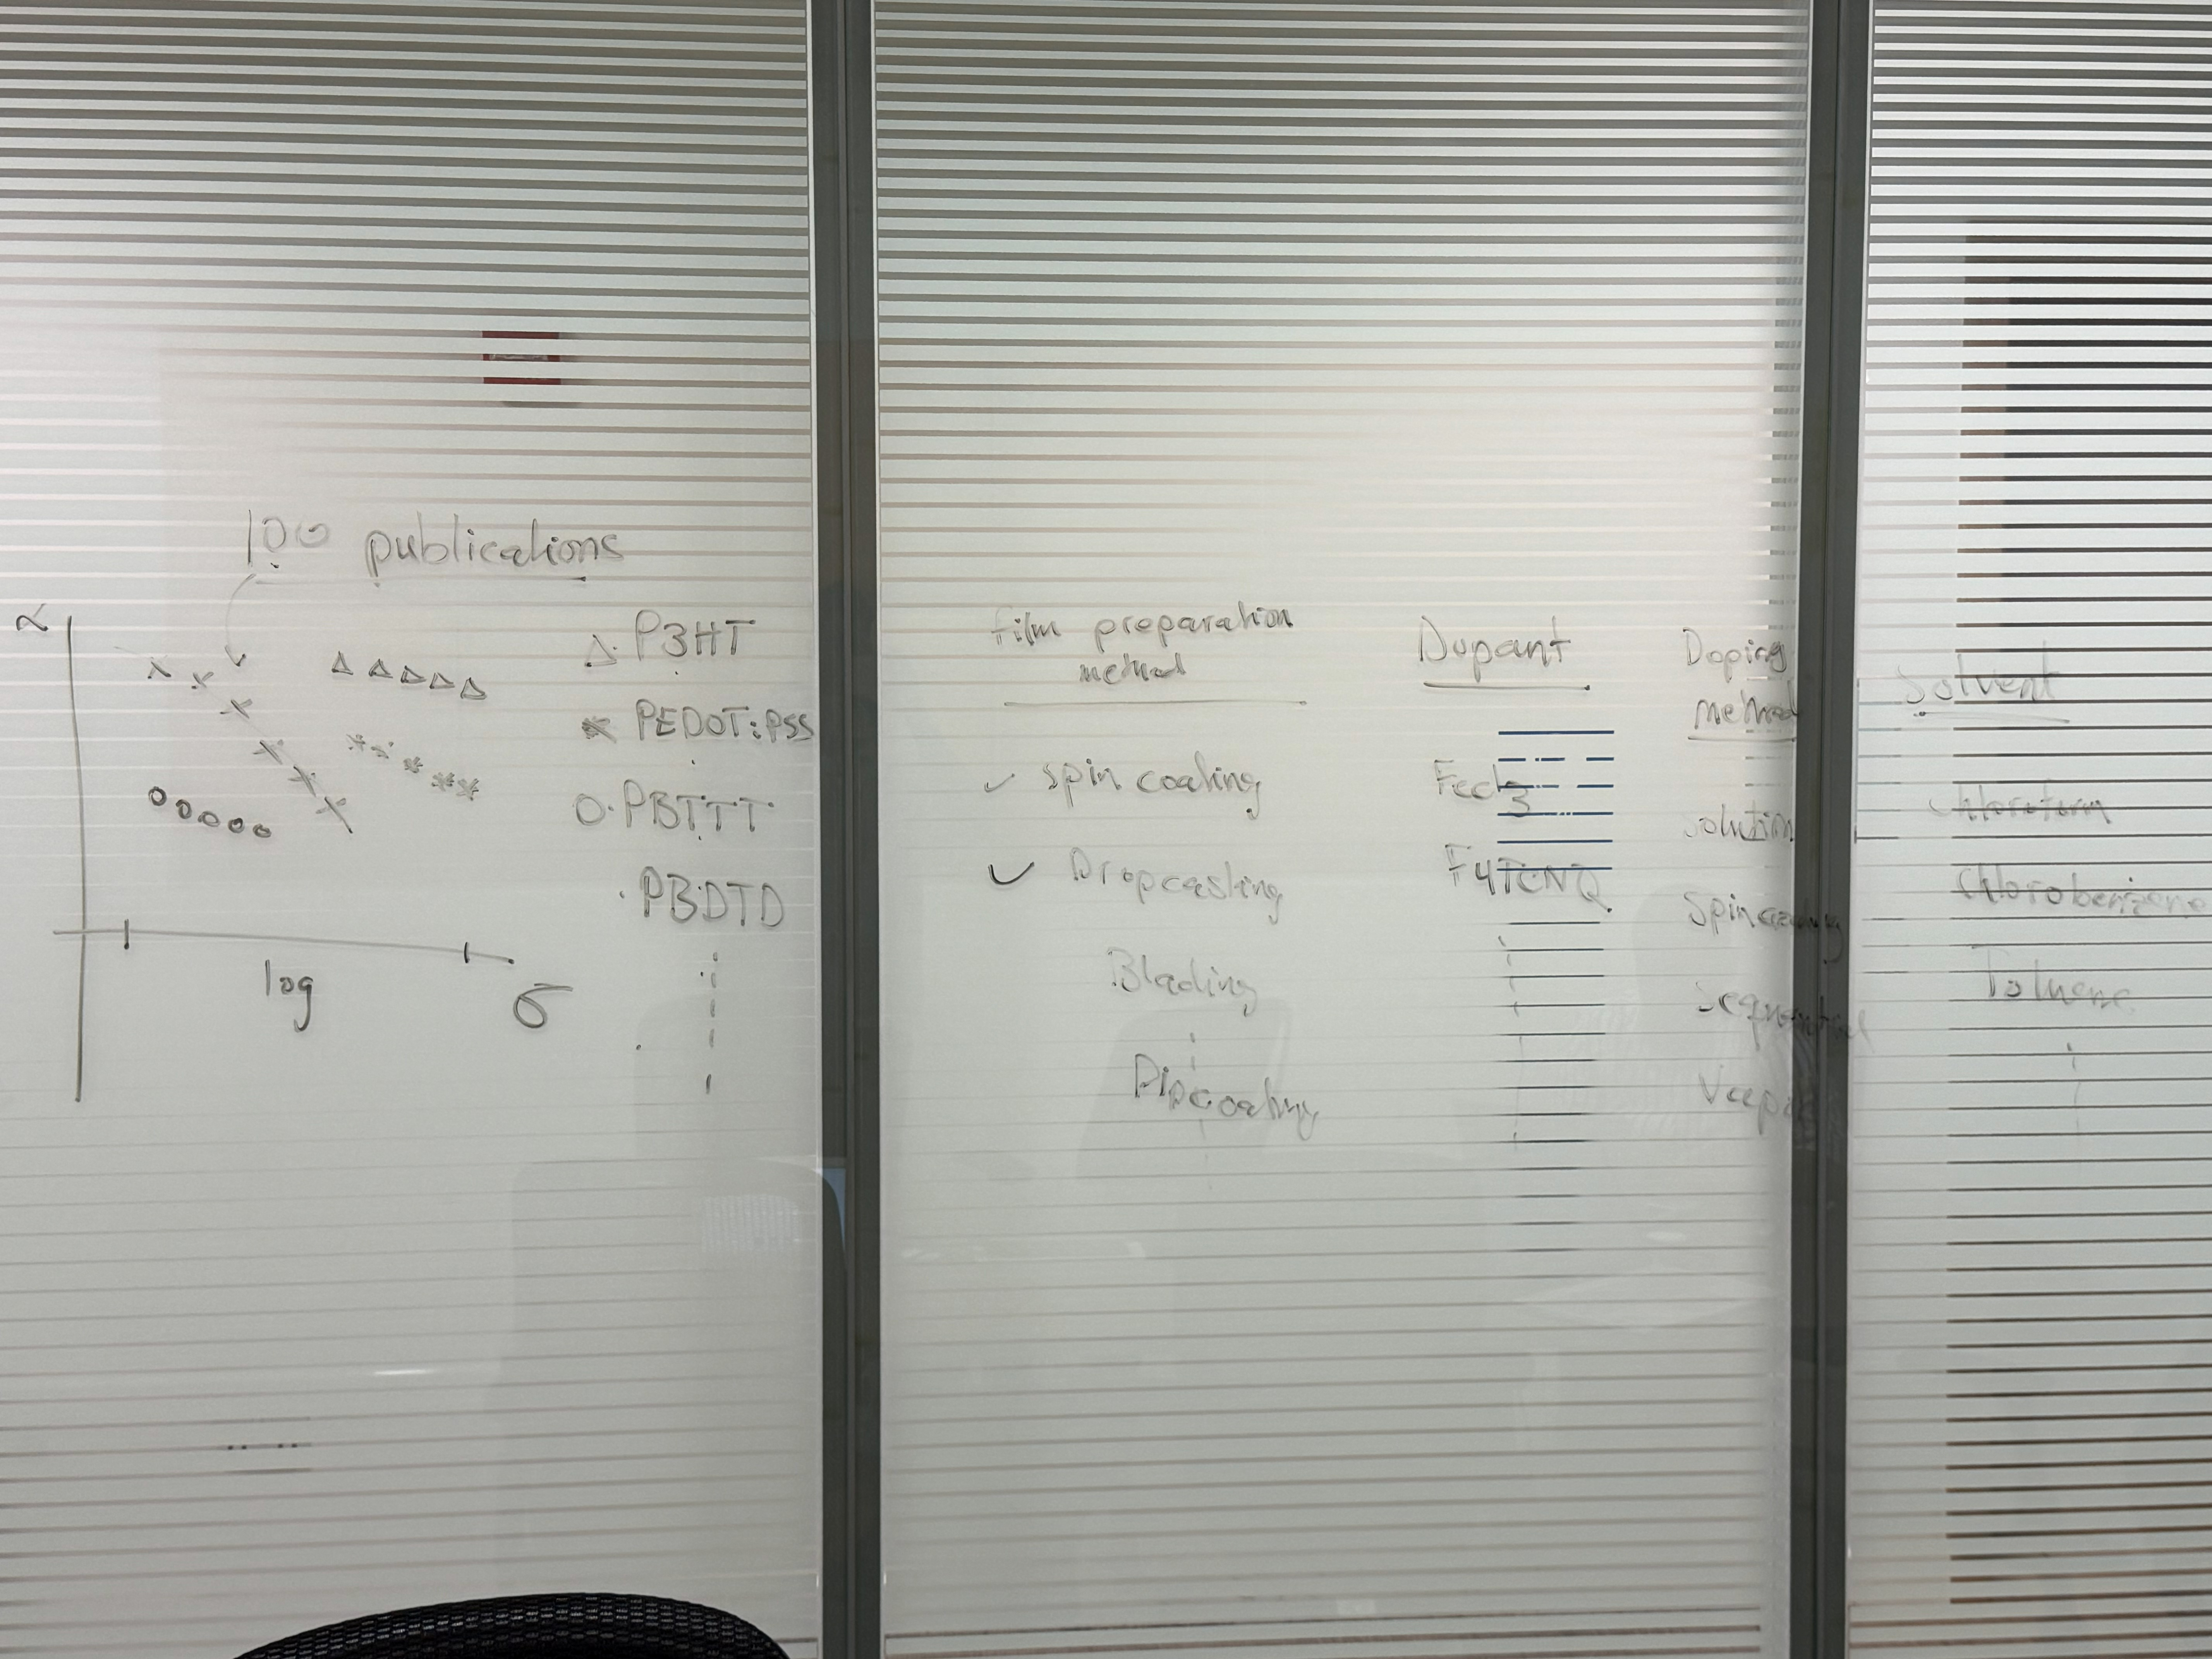 100 publications
α
△ · P3HT
* PEDOT:PSS
O · PBTTT
· PBDTD
log
σ
film preparation
method
✓ spin coating
✓ Dropcasting
Blading
Dipcoating
Dopant
Fecl3
F4TCNQ
Doping
method
solution
Spincoating
Sequential
Solvent
Chloroform
Chlorobenzene
Toluene